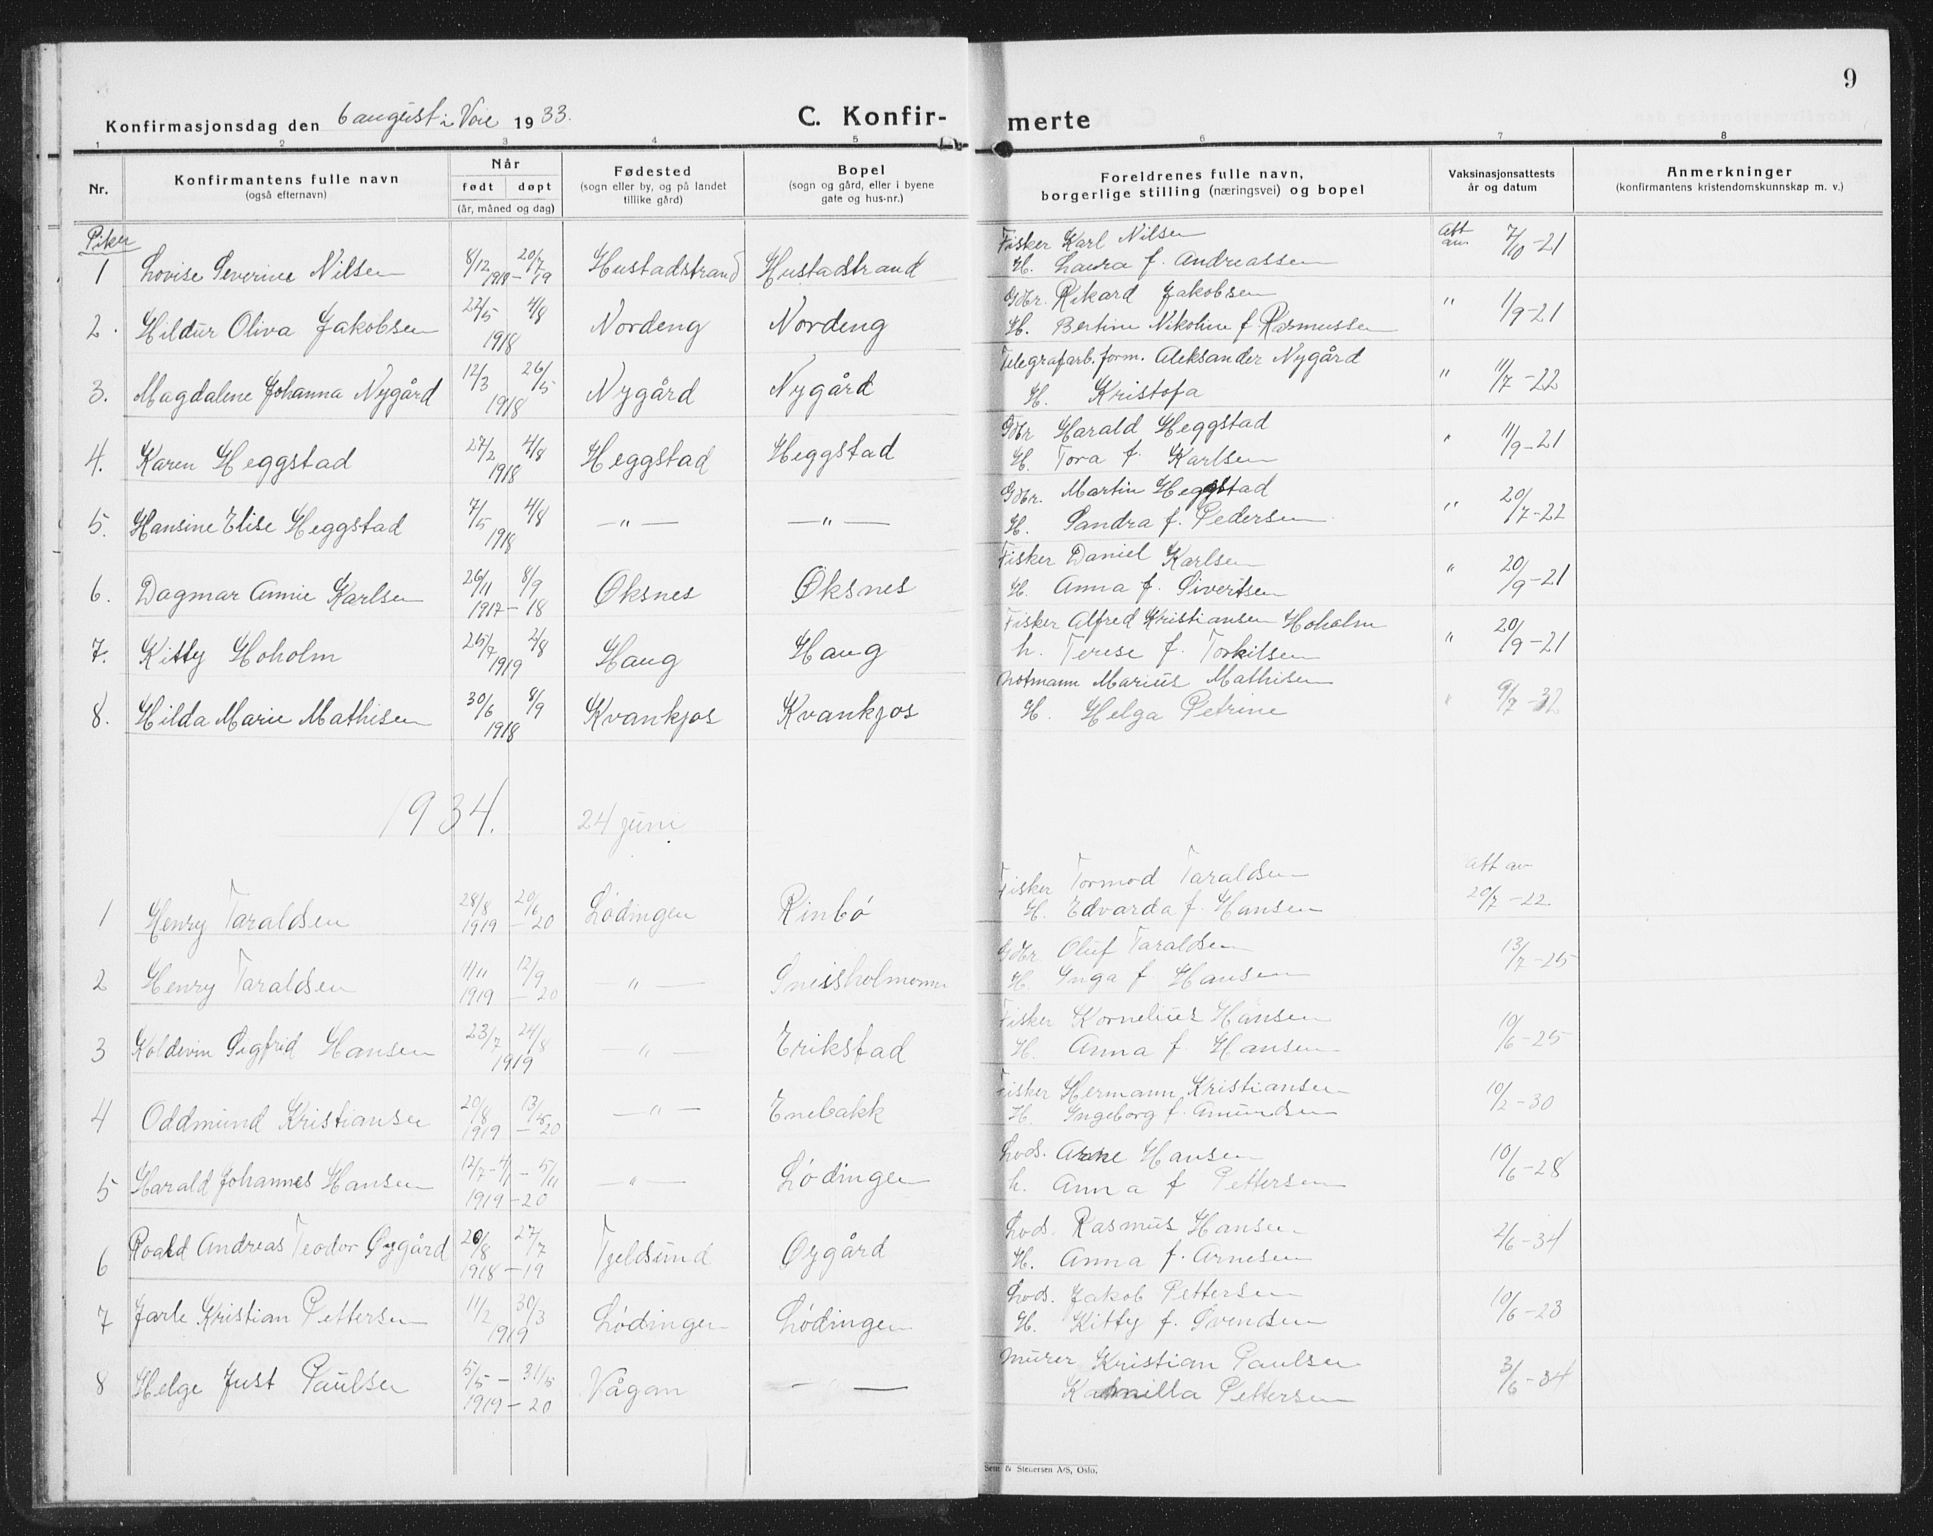 9
Konfirmasjonsdag den 6 august i Voie 1933.
C. Konfir-merte
1 2 3 4 5 6 7 8
Nr.
Konfirmantens fulle navn
(også efternavn)
Når
født døpt
(år, måned og dag)
Fødested
(sogn eller by, og på landet
tillike gård)
Bopel
(sogn og gård, eller i byene
gate og hus-nr.)
Foreldrenes fulle navn,
borgerlige stilling (næringsvei) og bopel
Vaksinasjonsattests
år og datum
Anmerkninger
(konfirmantens kristendomskunnskap m. v.)
Piker
1 Lovise Severine Nilsen 8/12 1918 – 20/7 19 Hustadstrand Hustadstrand Fisker Karl Nilsen
H. Laura f. Andreassen Att 7/10-21
2. Hildur Oliva Jakobsen 22/5 4/8 1918 Nordeng Nordeng Gbr. Rikard Jakobsen
H. Bertine Nikoline f. Rasmussen " 1/9-21
3. Magdalene Johanna Nygård 12/3 26/5 1918 Nygård Nygård Telegrafarb.form. Aleksander Nygård
H. Kristofa " 11/7-22
4. Karen Heggstad 27/2 4/8 1918 Heggstad Heggstad Gbr Harald Heggstad
H. Tora f. Karlsen " 11/9-21
5. Hansine Elise Heggstad 7/5 4/8 1918 —"— —"— Gbr. Martin Heggstad
H. Sandra f. Pedersen " 20/7-22
6. Dagmar Annie Karlsen 26/11 8/9 1917-18 Øksnes Øksnes Fisker Daniel Karlsen
H. Anna f. Sivertsen " 20/9-21
7. Kitty Hoholm 25/7 2/8 1919 Haug Haug Fisker Alfred Kristiansen Hoholm
h. Terese f. Torkilsen " 20/9-21
8. Hilda Marie Mathisen 30/6 8/9 1918 Kvankjos Kvankjos Notmann Marius Mathisen
H. Helga Petrine " 9/7-32
1934. 24 juni
1 Henry Taraldsen 28/8 1919 – 20/6 20 Lødingen Rinbø Fisker Tormod Taraldsen
H. Edvarda f. Hansen Att av 20/7-22.
2 Henry Taraldsen 1/11 1919 – 12/9 20 —"— Gbr. Oluf Taraldsen
H. Inga f Hansen 13/7-25
3 Koldevin Sigfrid Hansen 23/7 24/8 1919 " — Erikstad Fisker Kornelius Hansen
H. Anna f. Hansen 10/6-25
4 Oddmund Kristiansen 20/8 1919 – 20 —"— Enebakk Fisker Hermann Kristiansen
H. Ingeborg f. Amundsen 10/2-30
5 Harald Johannes Hansen 12/7 - 4/1 - 5/11 1919-20 —"— Lødingen Lods. Arne Hansen
h. Anna f Pettersen 10/6-28
6 Roald Andreas Teodor Øygård 20/8 27/7 1918-19 Tjeldsund Øygård Lods. Rasmus Hansen
H. Anna f. Arnesen 2/6-34
7 Jarle Kristian Pettersen 11/2 30/3 1919 Lødingen Lødingen Lods. Jakob Pettersen
H. Kitty f. Svendsen 10/6-23
8 Helge Just Paulsen 5/5 - 31/5 1919-20 Vågan —"— Murer Kristian Paulsen
Kamilla Pettersen 3/6-34
Sem & Stenersen A/S, Oslo.